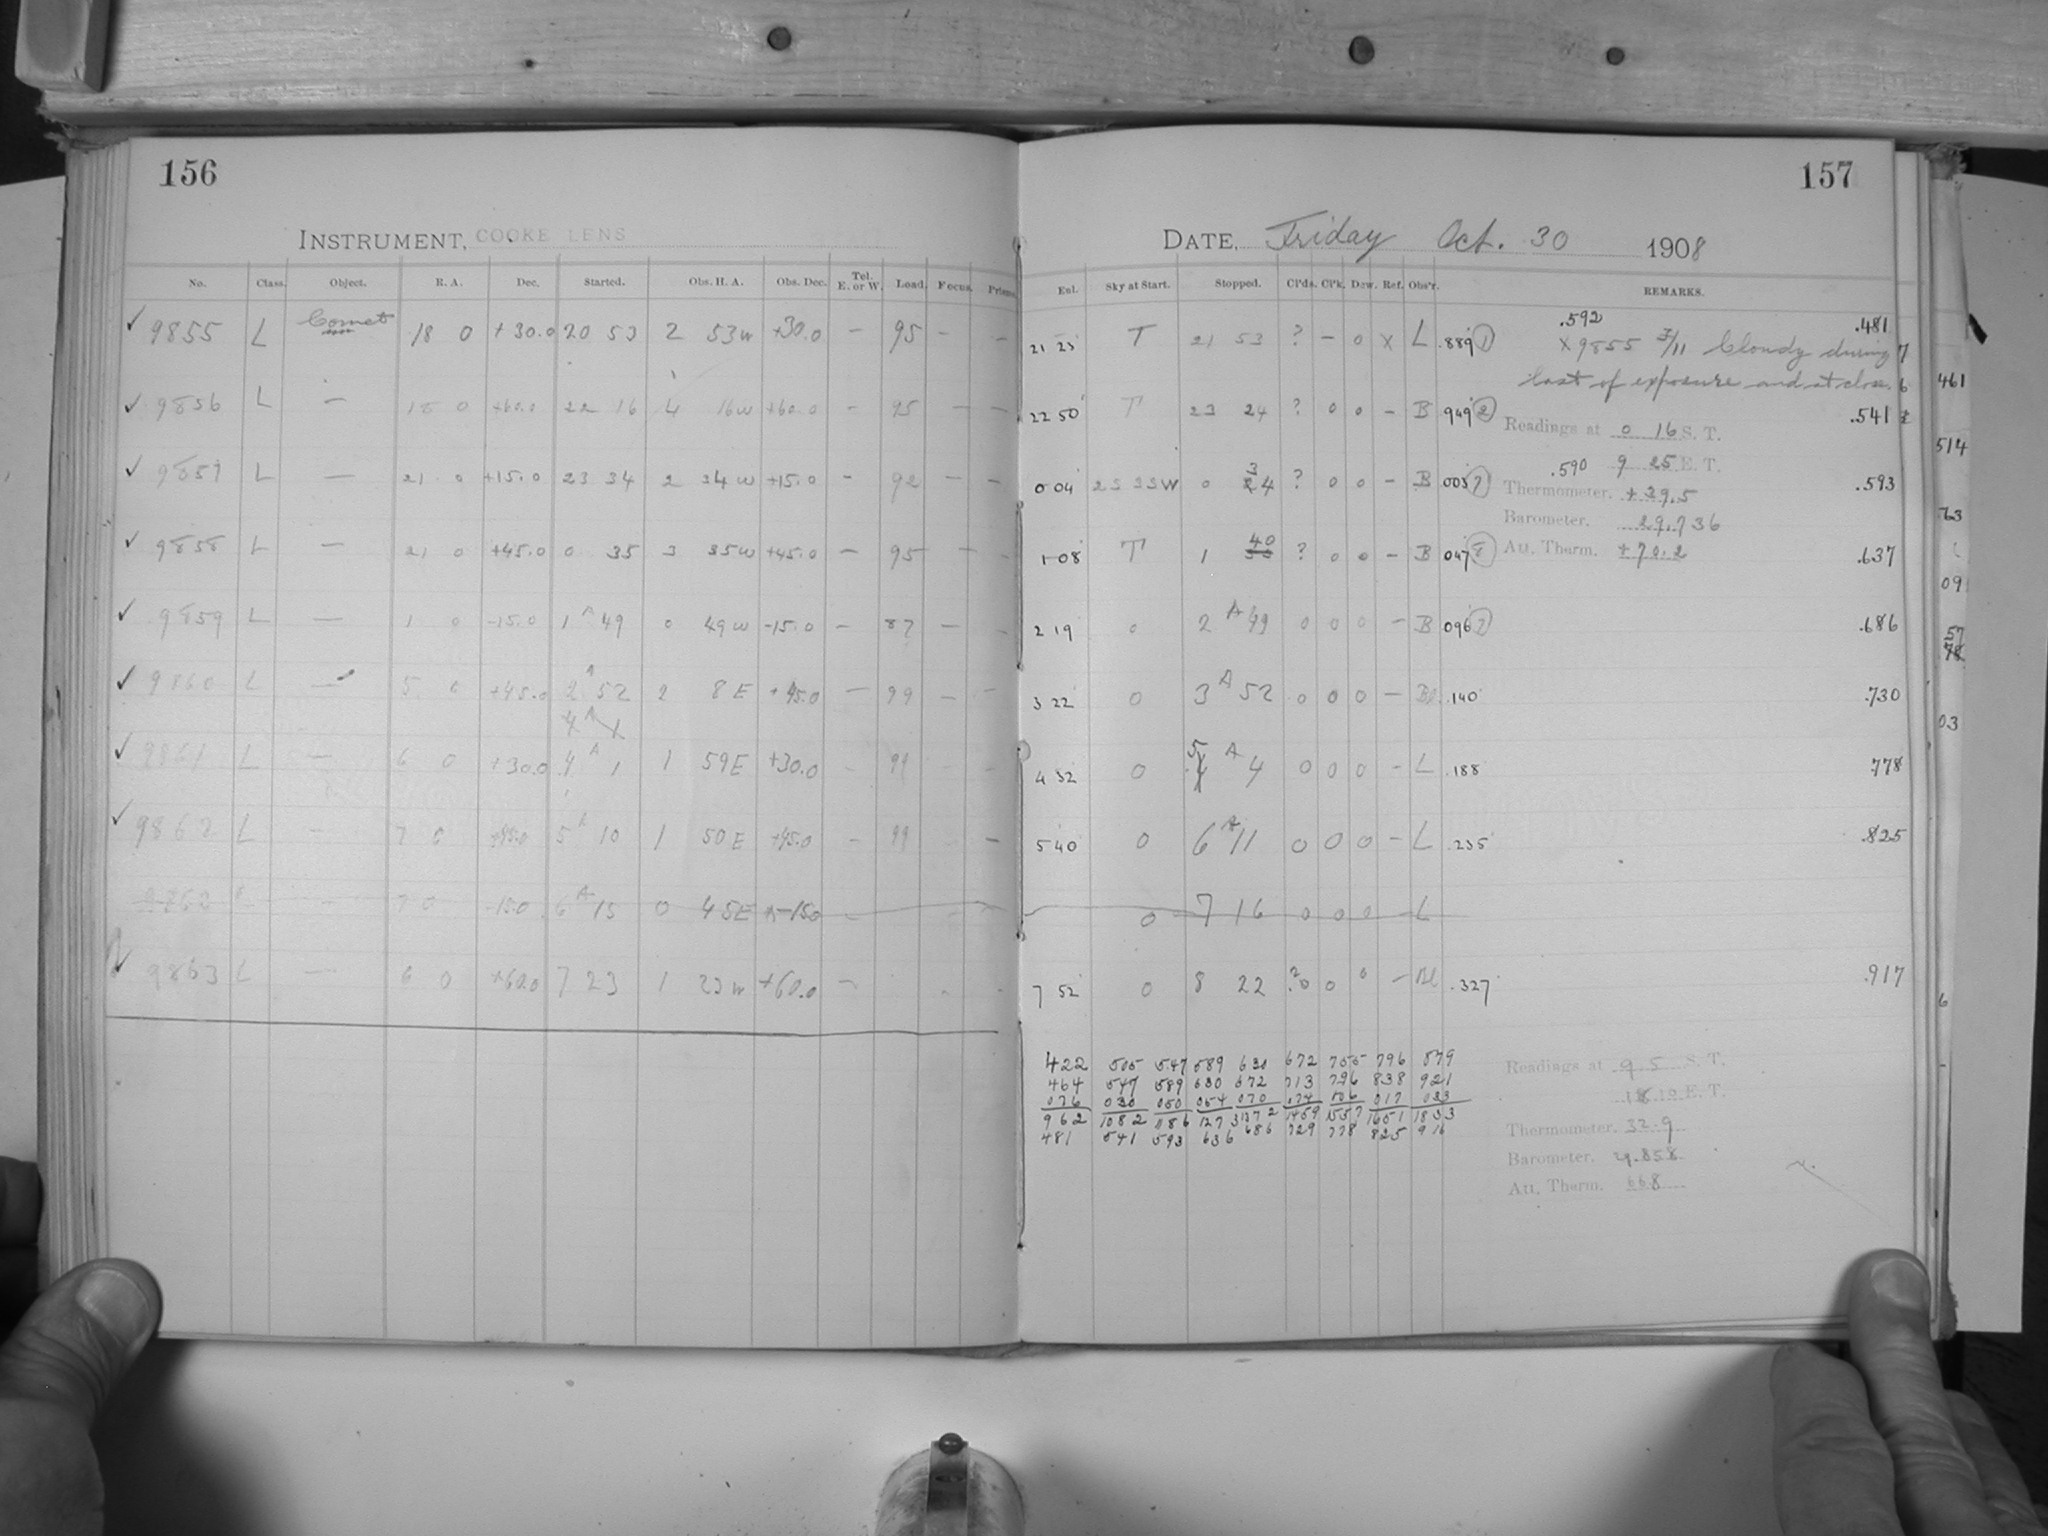 156
INSTRUMENT, COOKE LENS
No. Class. Object. R. A. Dec. Started. Obs. H. A. Obs. Dec. Tel. E. or W. Load. Focus. Prisms.
✓ 9855 L Comet 18 0 +30.0 20 53 2 53w +30.0 — 95 — —
✓ 9856 L — 18 0 +60.0 22 16 4 16w +60.0 — 95 — —
✓ 9857 L — 21 0 +15.0 23 34 2 34w +15.0 — 92 — —
✓ 9858 L — 21 0 +45.0 0 35 3 35w +45.0 — 95 — —
✓ 9859 L — 1 0 -15.0 1 A 49 0 49w -15.0 — 87 — —
✓ 9860 L — 5 0 +45.0 2 A 52 2 8E +45.0 — 99 — —
✓ 9861 L — 6 0 +30.0 4 A 1 1 59E +30.0 — 99
✓ 9862 L — 7 0 +45.0 5 A 10 1 50E +45.0 — 99 —
9862 — 7 0 -15.0 6 A 15 0 45E -150 —
✓ 9863 L — 6 0 +60.0 7 23 1 23w +60.0 —
157
DATE, Friday Oct. 30 1908
Ext. Sky at Start. Stopped. Cl'ds. Cl'k. Dew. Ref. Obs'r. REMARKS.
21 23 T 21 53 ? — 0 x L .889 1 .592 .481
x 9855 3/11 Cloudy during
last of exposure and at close.
22 50 T 23 24 ? 0 0 — B 949 2 .541
Readings at 0 16 S. T.
.590 9 25 E. T.
0 04 23 33W 0 34 ? 0 0 — B 005 7 .593
Thermometer. +39.5
Barometer. 29.736
1 08 T 1 40 ? 0 0 — B 047 8 .637
Att. Therm. +70.2
2 19 0 2 A 49 0 0 0 — B 096 7 .686
3 22 0 3 A 52 0 0 0 — Bl .140 .730
4 32 0 5 A 4 0 0 0 — L .188 .778
5 40 0 6 A 11 0 0 0 — L .235 .825
0 7 16 0 0 0 L
7 52 0 8 22 ? 0 0 0 — Bl .327 .917
422 505 547 589 630 672 755 796 879
464 547 589 630 672 713 796 838 921
076 030 050 054 070 074 006 017 033
962 1082 1186 1273 1372 1459 1557 1651 1833
481 541 593 636 686 729 778 825 916
Readings at 9 5 S. T.
18 10 E. T.
Thermometer. 32.9
Barometer. 29.858
Att. Therm. 66.8
461
514
63
091
57
03
6